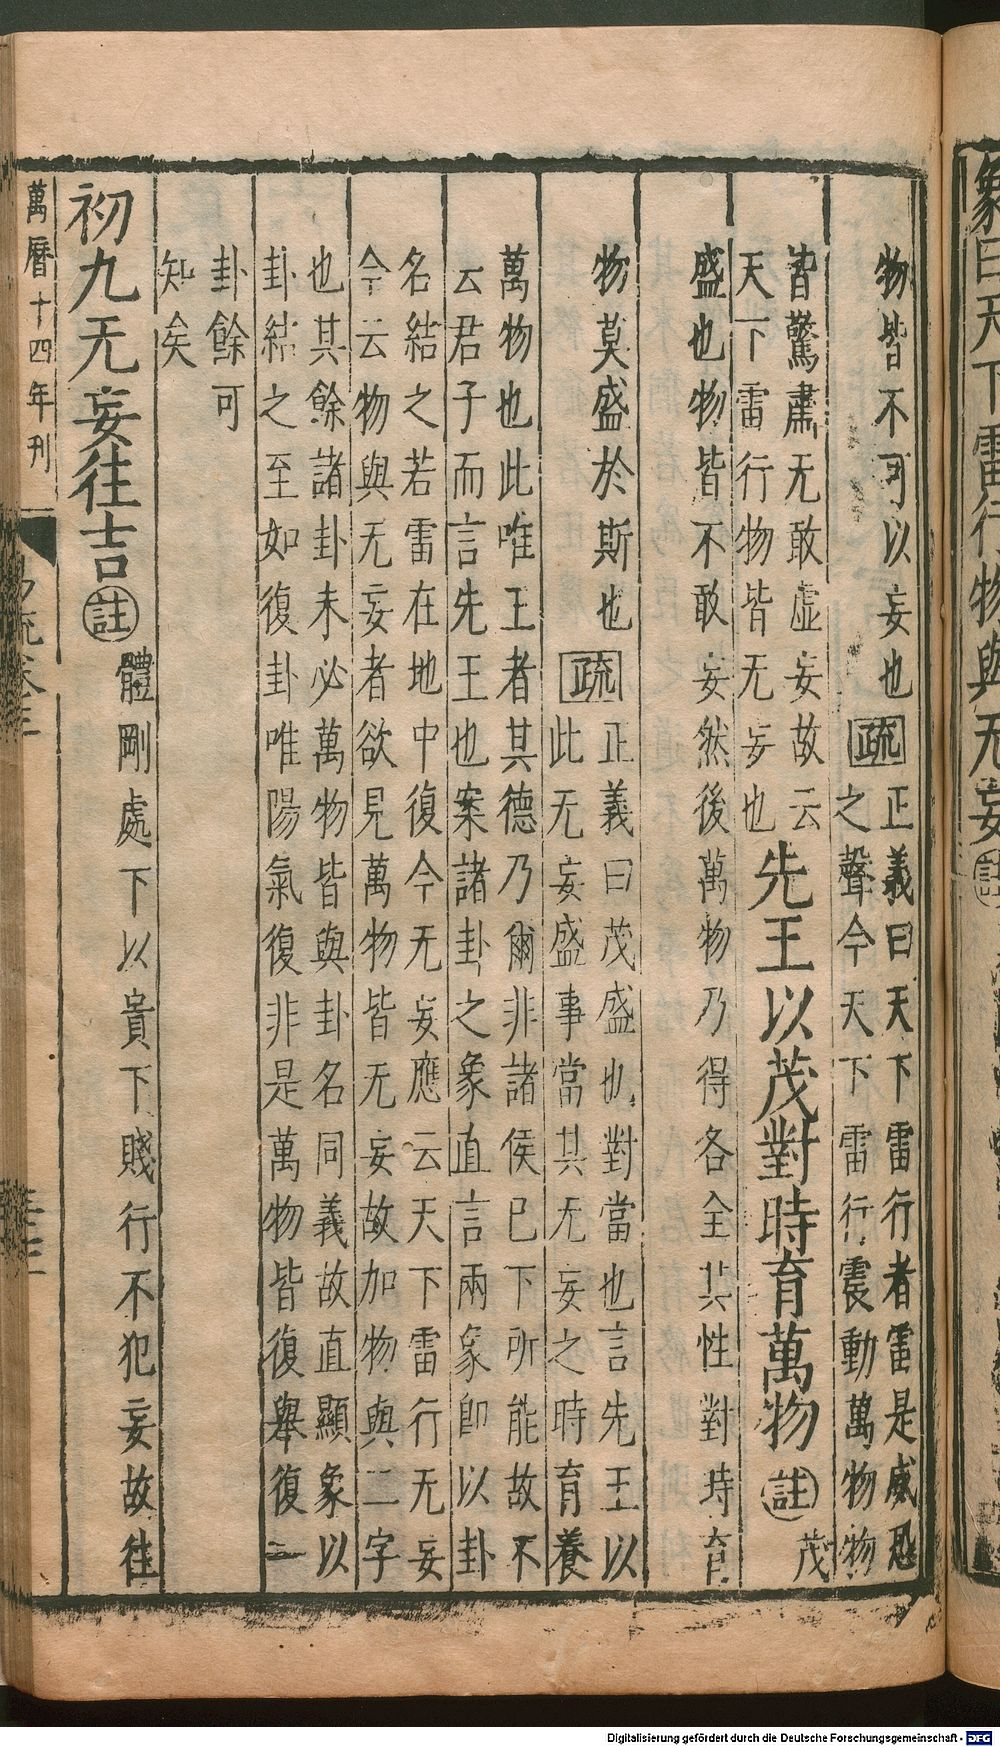 象曰天下雷行物與无妄註
物皆不可以妄也疏正義曰天下雷行者雷是威恐
之聲今天下雷行震動萬物物
皆驚肅无敢虛妄故云
天下雷行物皆无妄也先王以茂對時育萬物註茂
盛也物皆不敢妄然後萬物乃得各全其性對時育
物莫盛於斯也疏正義曰茂盛也對當也言先王以
此无妄盛事當其无妄之時育養
萬物也此唯王者其德乃爾非諸侯已下所能故不
云君子而言先王也案諸卦之象直言兩象即以卦
名結之若雷在地中復今无妄應云天下雷行无妄
今云物與无妄者欲見萬物皆无妄故加物與二字
也其餘諸卦未必萬物皆與卦名同義故直顯象以
卦結之至如復卦唯陽氣復非是萬物皆復舉復一
卦餘可
知矣
初九无妄往吉註體剛處下以貴下賤行不犯妄故往
萬曆十四年刊
易疏卷三
Digitalisierung gefördert durch die Deutsche Forschungsgemeinschaft - DFG